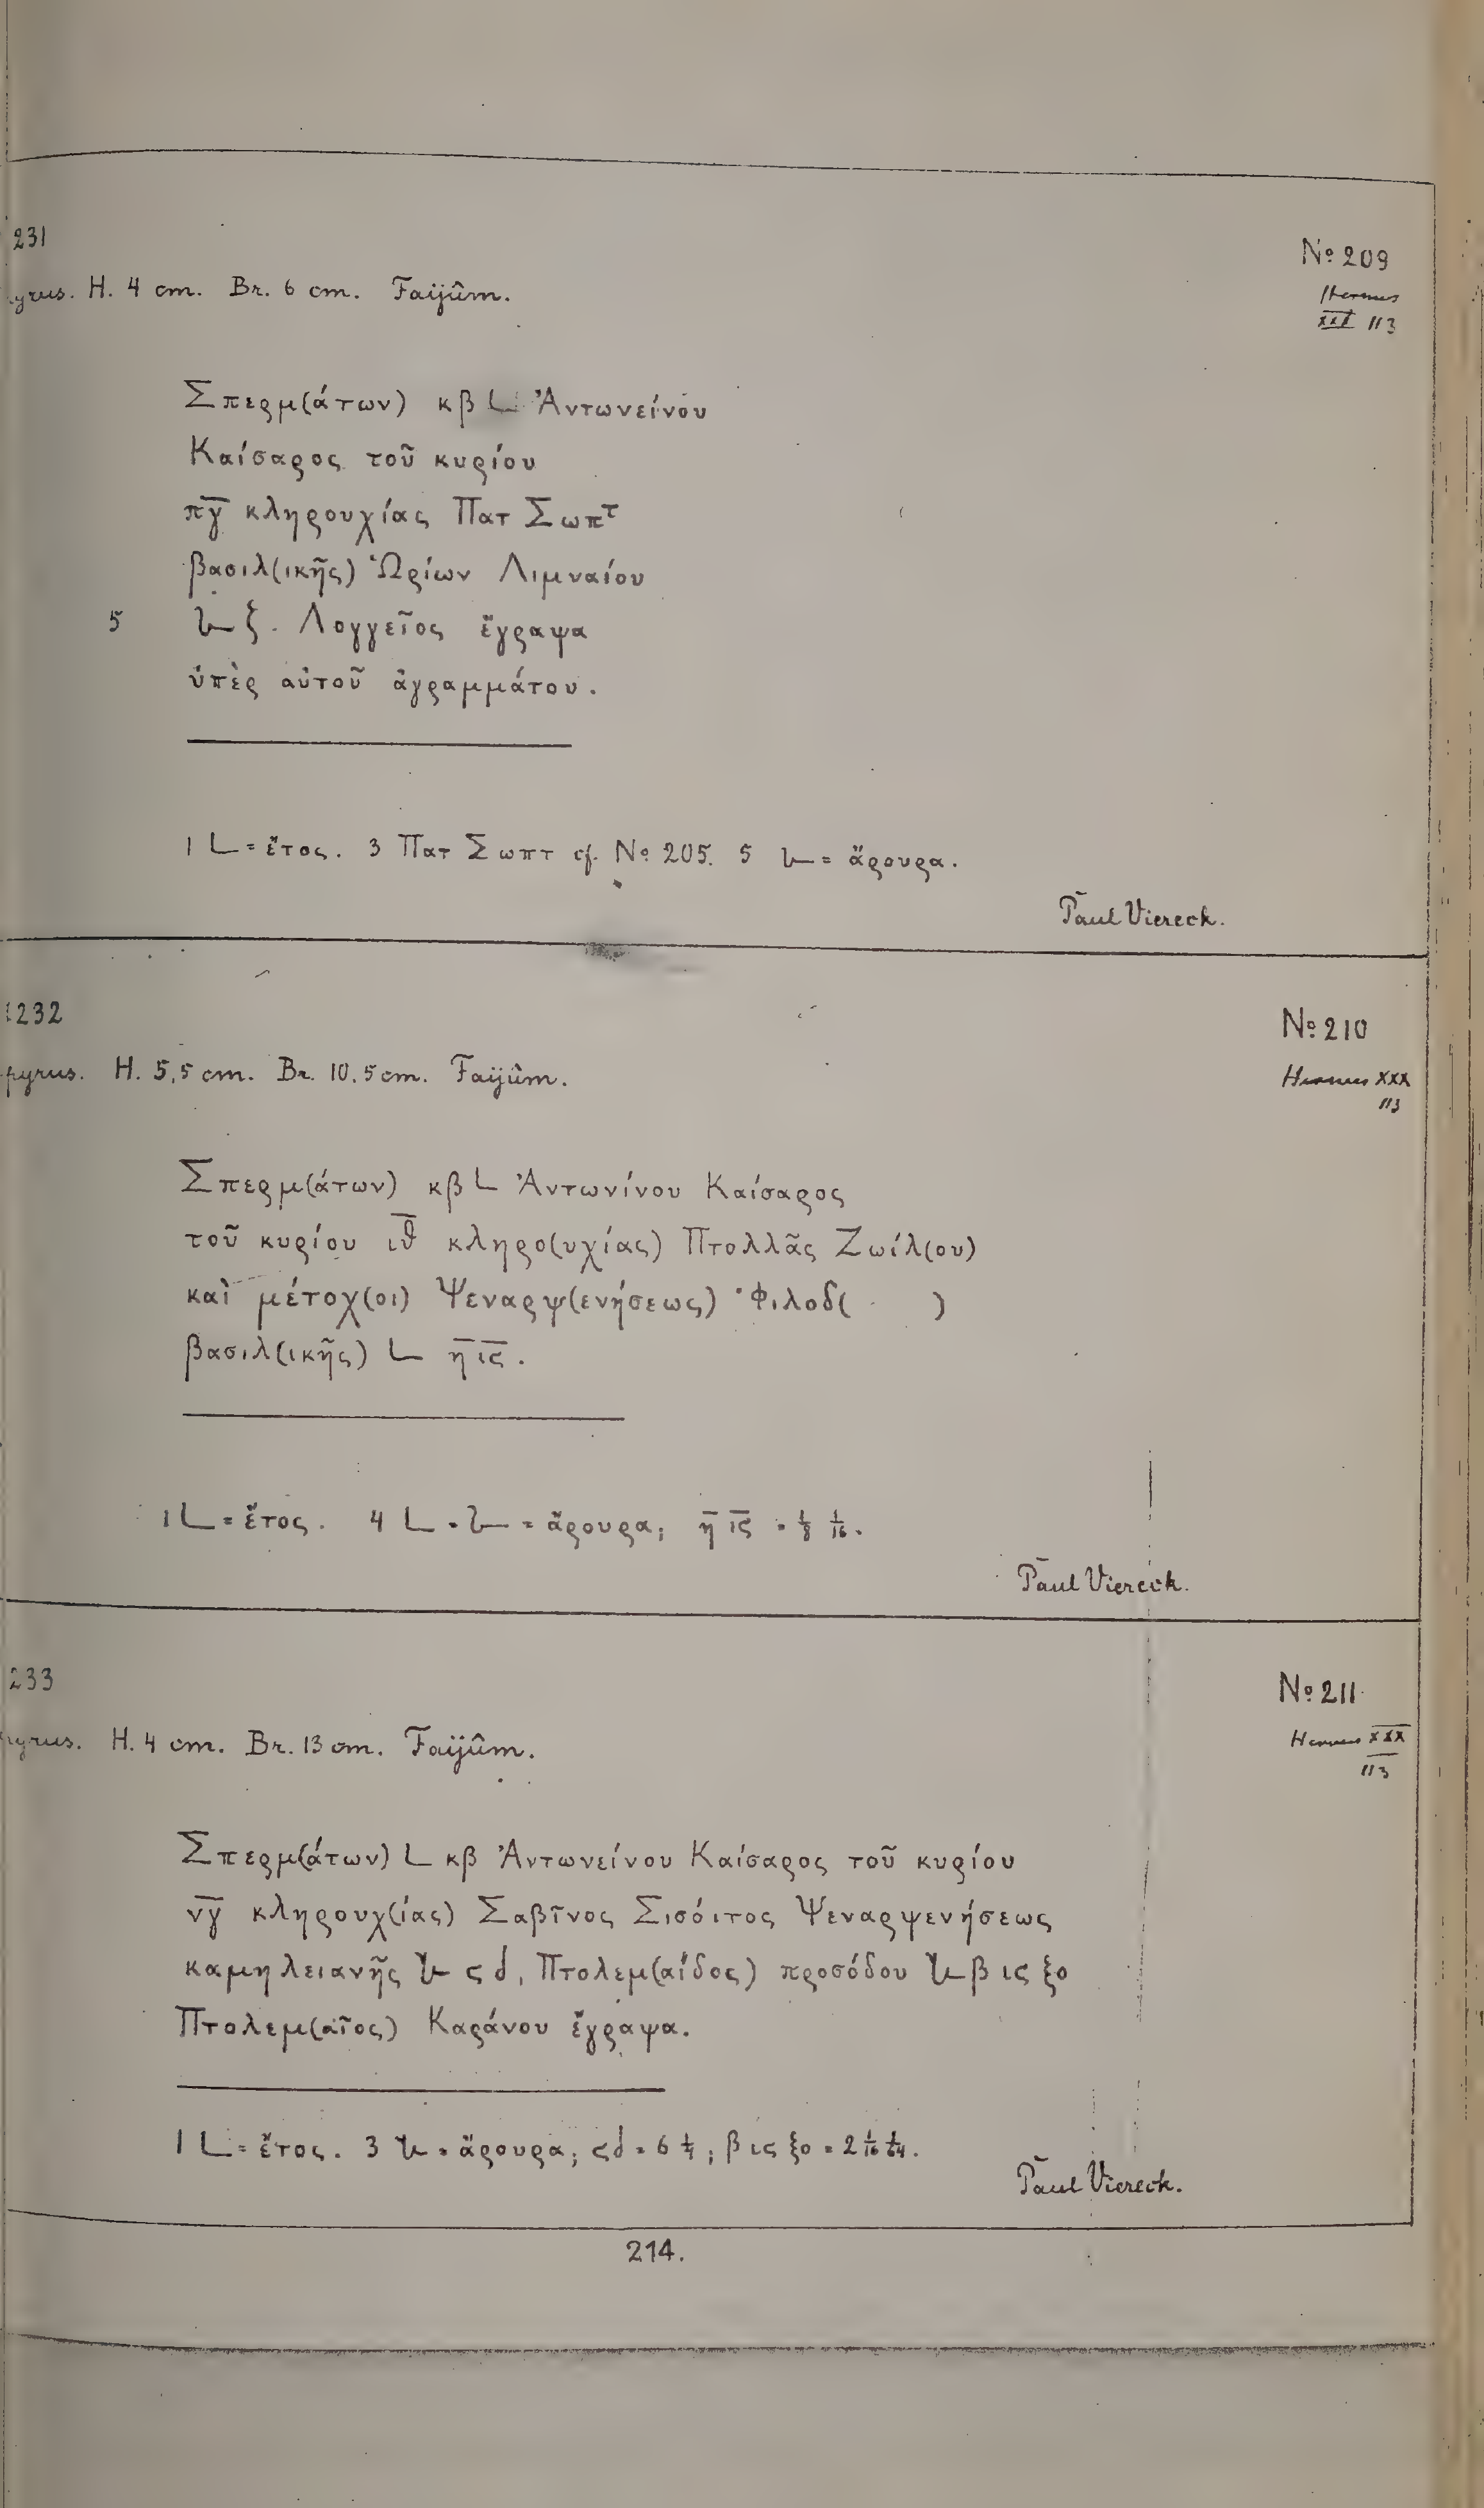 231
N° 209
yrus. H. 4 cm. Br. 6 cm. Faijûm.
Hermes
XXX 113
Σπερμ(άτων) κβ L Ἀντωνείνου
Καίσαρος τοῦ κυρίου
π̅γ̅ κληρουχίας Πατ Σωπτ
βασιλ(ικῆς) Ὡρίων Λιμναίου
5 𐅵 ξ. Λογγεῖος ἔγραψα
ὑπὲρ αὐτοῦ ἀγραμμάτου.
1 L = ἔτος. 3 Πατ Σωπτ cf. N° 205. 5 𐅵 = ἄρουρα.
Paul Viereck.
232
N° 210
pyrus. H. 5,5 cm. Br. 10,5 cm. Faijûm.
Hermes XXX
113
Σπερμ(άτων) κβ L Ἀντωνίνου Καίσαρος
τοῦ κυρίου ι̅θ̅ κληρο(υχίας) Πτολλᾶς Ζωίλ(ου)
καὶ μέτοχ(οι) Ψεναρψ(ενήσεως) Φιλοδ( )
βασιλ(ικῆς) L η̅ ι̅ς̅.
1 L = ἔτος. 4 L = 𐅵 = ἄρουρα; η̅ ι̅ς̅ = 1/8 1/16.
Paul Viereck.
233
N° 211
pyrus. H. 4 cm. Br. 13 cm. Faijûm.
Hermes XXX
113
Σπερμ(άτων) L κβ Ἀντωνείνου Καίσαρος τοῦ κυρίου
ν̅γ̅ κληρουχ(ίας) Σαβῖνος Σισόιτος Ψεναρψενήσεως
καμηλειανῆς 𐅵 ς d, Πτολεμ(αίδος) προσόδου 𐅵 β ις ξο
Πτολεμ(αῖος) Καράνου ἔγραψα.
1 L = ἔτος. 3 𐅵 = ἄρουρα; ς d = 6 1/4; β ις ξο = 2 1/16 1/64.
Paul Viereck.
214.